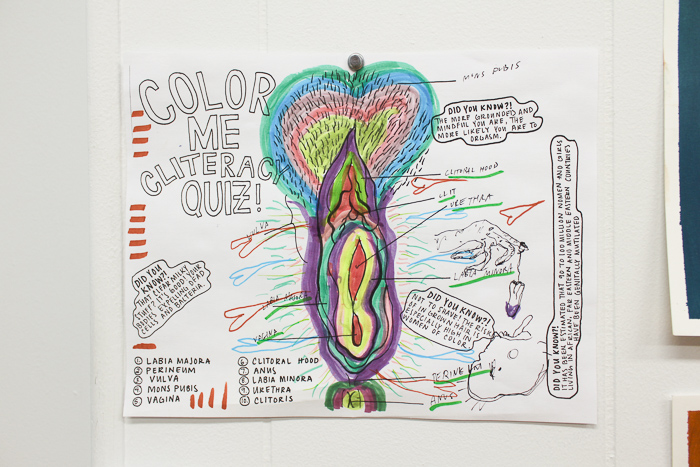 COLOR
ME
CLITERACY
QUIZ!
MONS PUBIS
DID YOU KNOW?!
THE MORE GROUNDED AND
MINDFUL YOU ARE, THE
MORE LIKELY YOU ARE TO
ORGASM.
CLITORAL HOOD
CLIT
URETHRA
VULVA
LABIA MINORA
LABIA MAJORA
VAGINA
PERINEUM
ANUS
DID YOU
KNOW?!
THAT CLEAR MILKY
STUFF IS GOOD! YOUR
BODY IS EXPELLING DEAD
CELLS AND BACTERIA.
DID YOU KNOW?!
NOT TO SHAVE! THE RISK
OF IN GROWN HAIR IS
ESPECIALLY HIGH IN
WOMEN OF COLOR
DID YOU KNOW?!
IT HAS BEEN ESTIMATED THAT 90 TO 100 MILLION WOMEN AND GIRLS
LIVING IN AFRICAN, FAR EASTERN AND MIDDLE EASTERN COUNTRIES
HAVE BEEN GENITALLY MUTILATED
1 LABIA MAJORA
2 PERINEUM
3 VULVA
4 MONS PUBIS
5 VAGINA
6 CLITORAL HOOD
7 ANUS
8 LABIA MINORA
9 URETHRA
10 CLITORIS